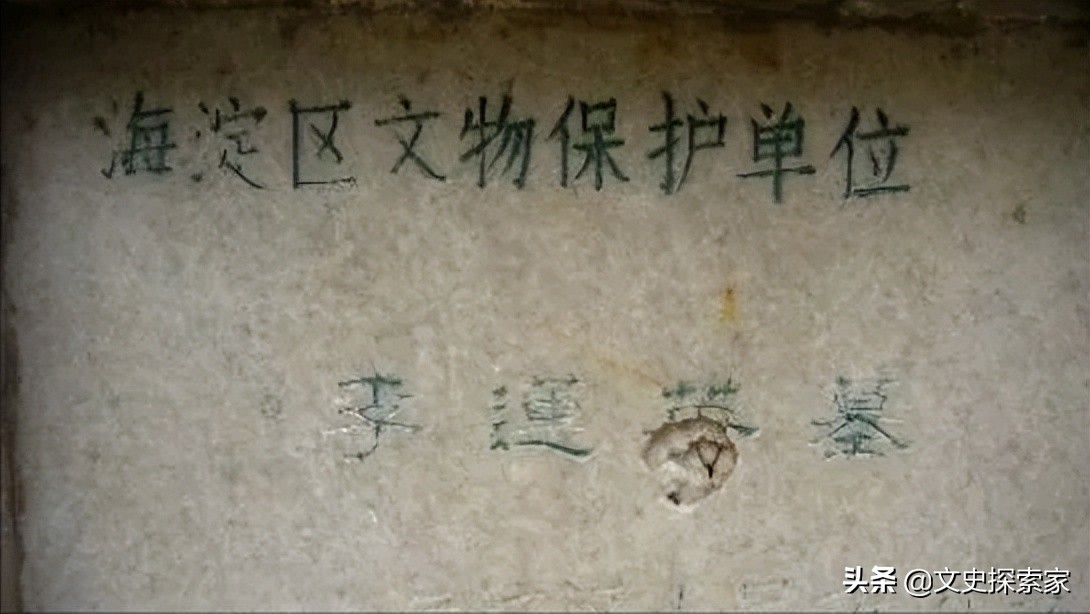 海淀区文物保护单位
李蓮英墓
头条 @文史探索家